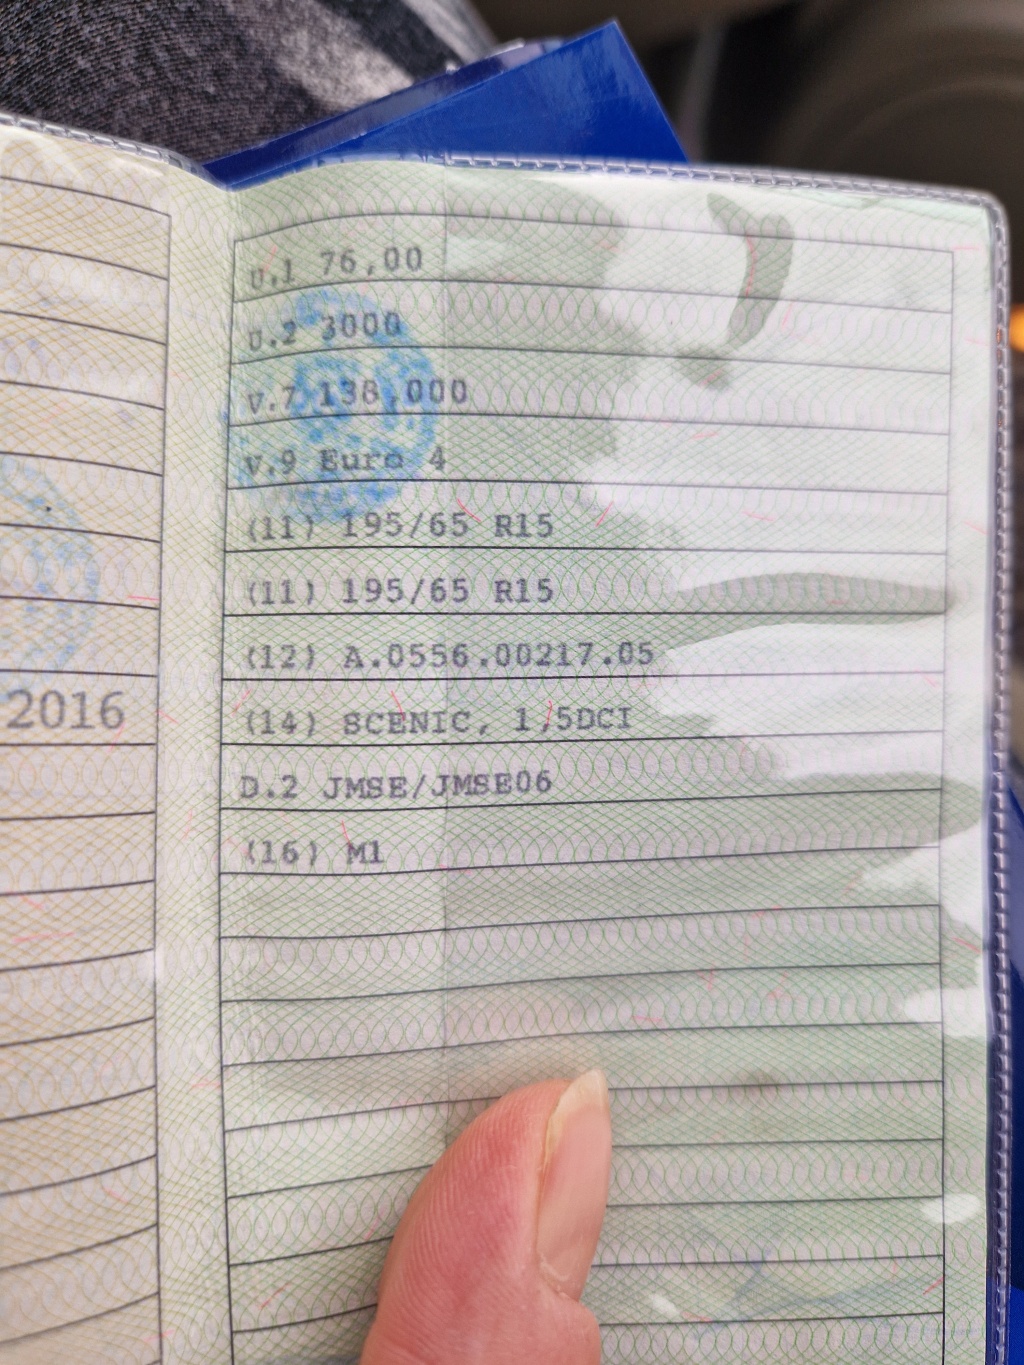 U.1 76,00
U.2 3000
V.7 138,000
V.9 Euro 4
(11) 195/65 R15
(11) 195/65 R15
(12) A.0556.00217.05
2016
(14) SCENIC, 1,5DCI
D.2 JMSE/JMSE06
(16) M1